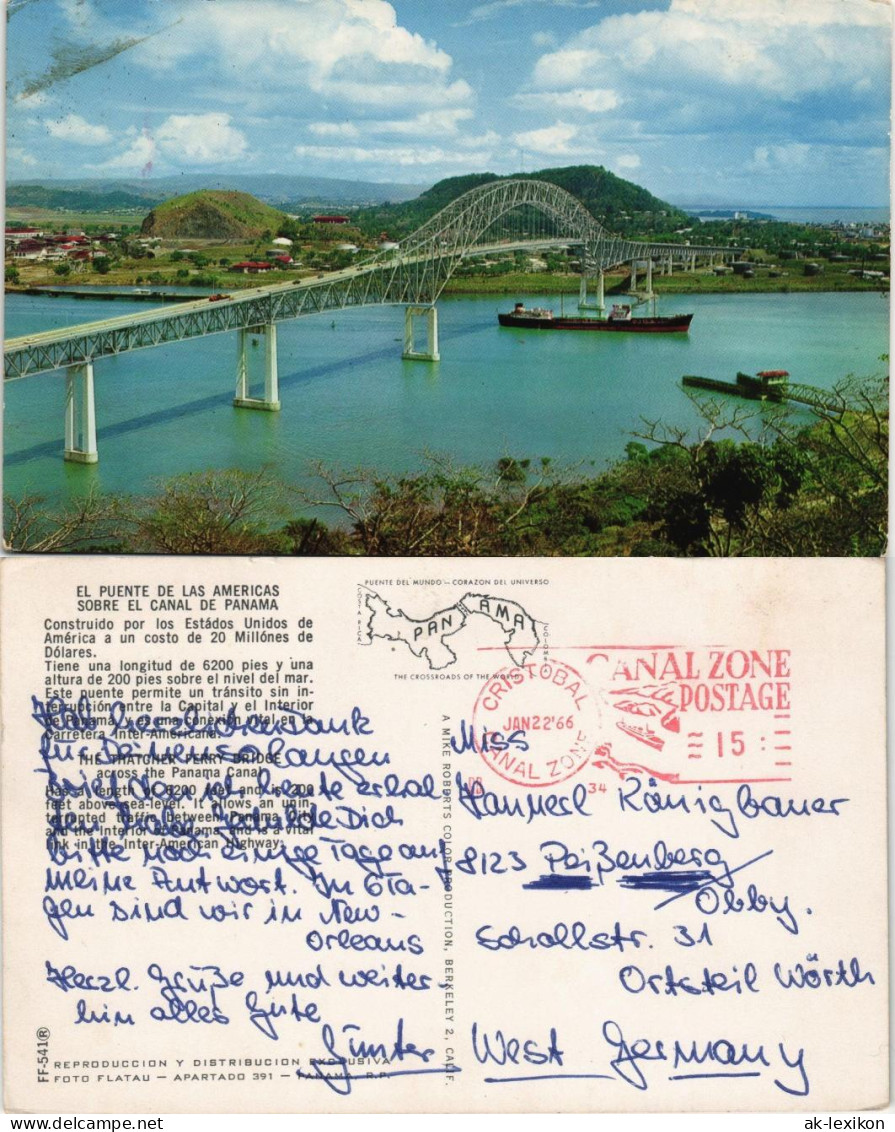 EL PUENTE DE LAS AMERICAS
SOBRE EL CANAL DE PANAMA
Construido por los Estádos Unidos de
América a un costo de 20 Millónes de
Dólares.
Tiene una longitud de 6200 pies y una
altura de 200 pies sobre el nivel del mar.
Este puente permite un tránsito sin in-
terrupción entre la Capital y el Interior
de Panamá, y es una conexión vital en la
Carretera Inter-Americana.
THE THATCHER FERRY BRIDGE
across the Panama Canal
Has a length of 6200 feet and is 200
feet above sea-level. It allows an unin-
terrupted traffic between Panama City
and the Interior of Panama, and is a vital
link in the Inter-American Highway.
Hab herzl.
für Deinen so langen
Brief, den ich heute erhal
ten habe. Dich
bitte noch einige Tage auf
meine Antwort. In 6 Ta-
gen sind wir in New-
Orleans
Herzl. Grüße und weiter-
hin alles Gute
Günter
FF-541 ®
REPRODUCCION Y DISTRIBUCION EXCLUSIVA
FOTO FLATAU - APARTADO 391 - PANAMA, R.P.
PUENTE DEL MUNDO - CORAZON DEL UNIVERSO
COSTA RICA
PANAMA
COLOMBIA
THE CROSSROADS OF THE WORLD
A MIKE ROBERTS COLOR PRODUCTION, BERKELEY 2, CALIF.
CRISTOBAL
JAN22'66
CANAL ZONE
34
CANAL ZONE
POSTAGE
15
Miss
Hannerl Königbauer
8123 Peißenberg
Obby.
Schollstr. 31
Ortsteil Wörth
West Germany
ak-ansichtskarten.de
ak-lexikon